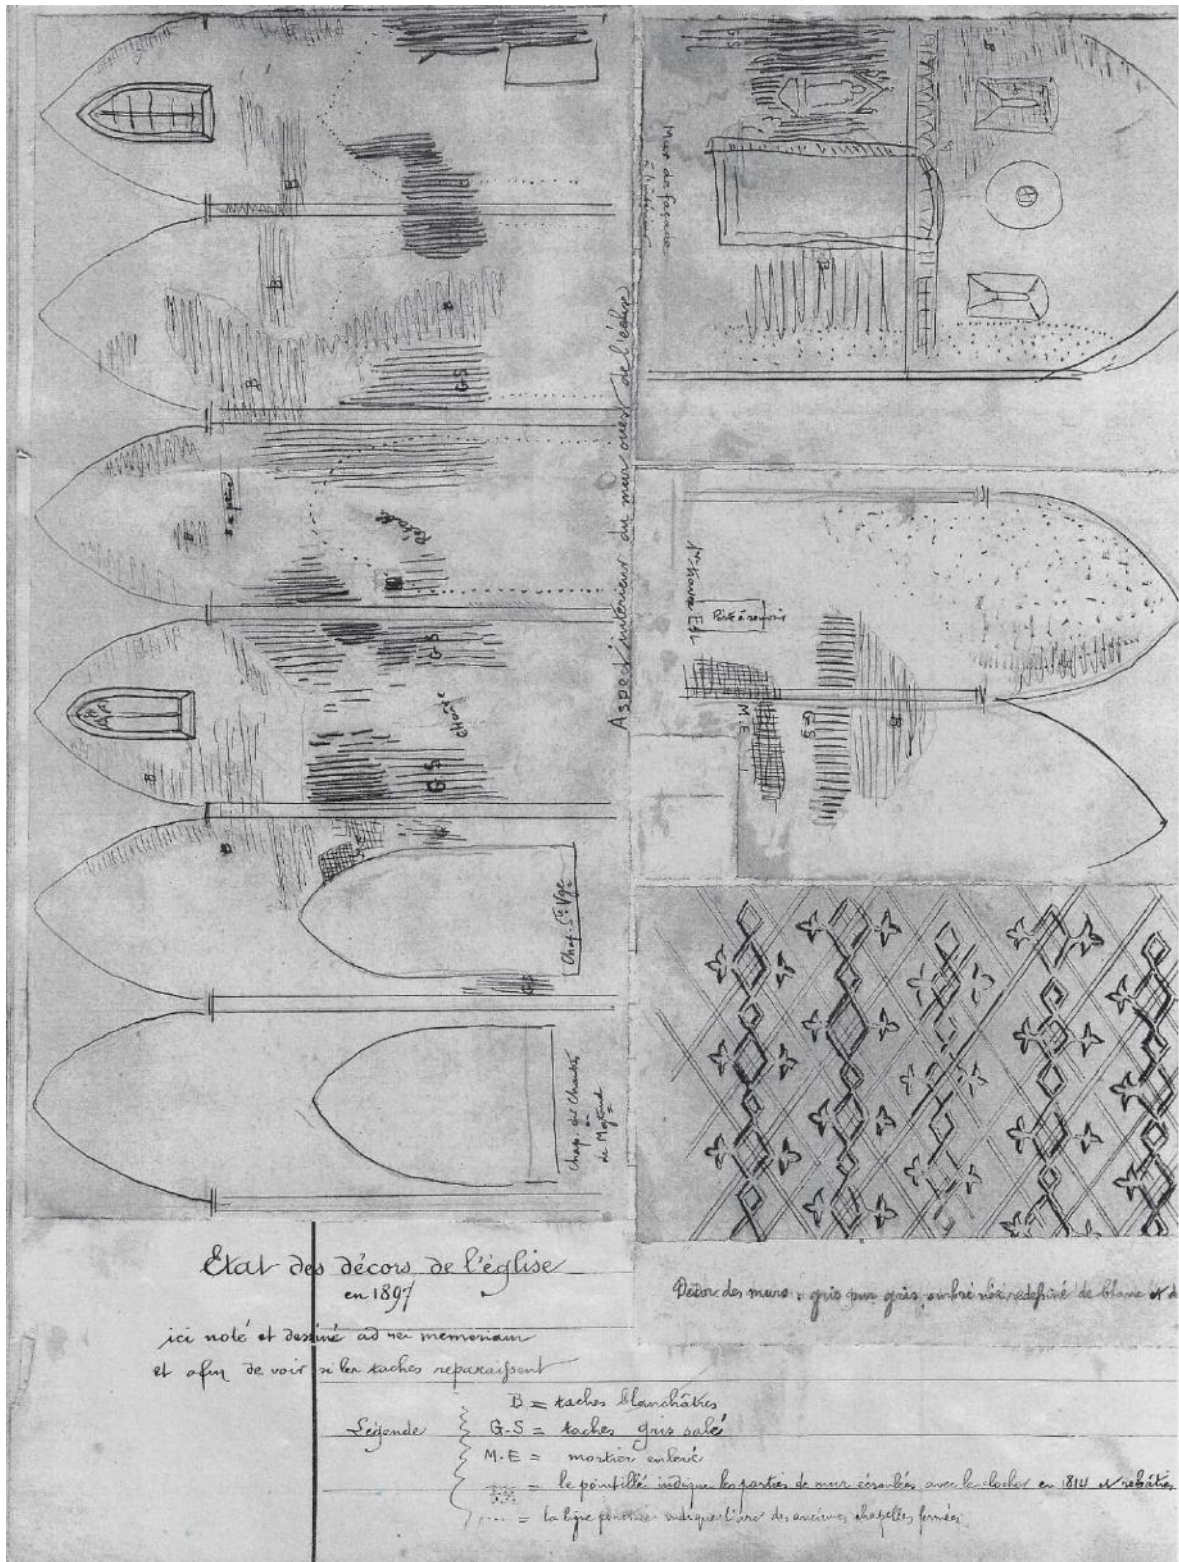 Mur de façade
à l'intérieur
B
B
B
B
B
G S
Aspect intérieur du mur ouest de l'église
B
G.S
change
G.S
B
B
Chap. Ste Vge
Chap. de
de
1re travée Est
Porte à
M.E
G.S
B
Etat des décors de l'église
en 1897
ici noté et dessiné ad memoriam
et afin de voir si les taches reparaissent
Décor des murs : gris sur gris, ombré noir, redessiné de blanc et d
Légende
B = taches blanchâtres
G-S = taches gris salé
M.E = mortier enlevé
= le pointillé indique les parties de mur écroulées avec le clocher en 1814 et rebâties
.... = la ligne indique l'arc des anciennes chapelles fermées.